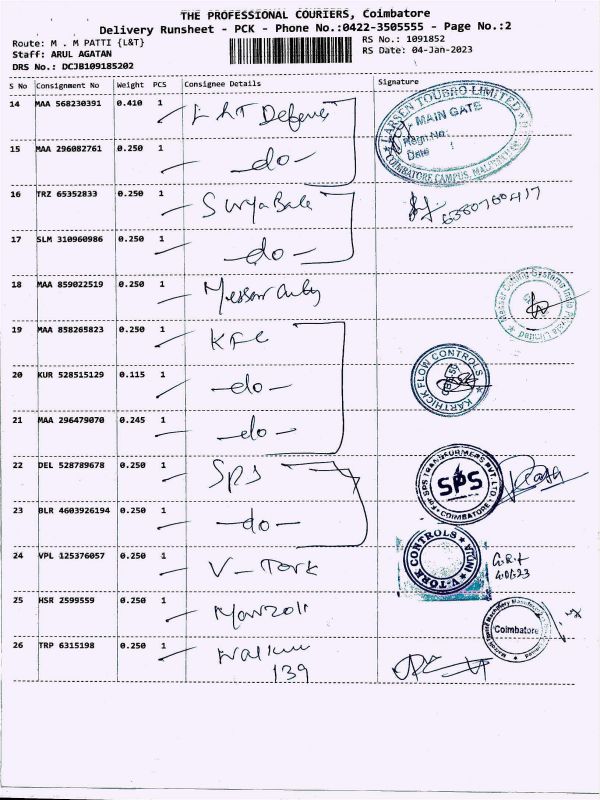 THE PROFESSIONAL COURIERS, Coimbatore
Delivery Runsheet - PCK - Phone No.:0422-3505555 - Page No.:2
Route: M . M PATTI {L&T}
Staff: ARUL AGATAN
DRS No.: DCJB109185202
RS No.: 1091852
RS Date: 04-Jan-2023
S No Consignment No Weight PCS Consignee Details Signature
14 MAA 568230391 0.410 1 L&T Defence
LARSEN TOUBRO LIMITED
MAIN GATE
Regn.No:
Date :
COIMBATORE CAMPUS,
15 MAA 296082761 0.250 1 -do-
16 TRZ 65352833 0.250 1 Surya Bala
17 SLM 310960986 0.250 1 -do-
18 MAA 859022519 0.250 1 Messer
Messer Cutting Systems India Private Limited
19 MAA 858265823 0.250 1 KFC
20 KUR 528515129 0.115 1 -do-
KARTHICK FLOW CONTROLS
21 MAA 296479070 0.245 1 -do-
22 DEL 528789678 0.250 1 SPS
For SPS TRANSFORMERS PVT. LTD.
SPS
COIMBATORE
23 BLR 4603926194 0.250 1 -do-
24 VPL 125376057 0.250 1 V-Tork
V-TORK CONTROLS INDIA
25 HSR 2599559 0.250 1 Marzoli
Coimbatore
26 TRP 6315198 0.250 1
139